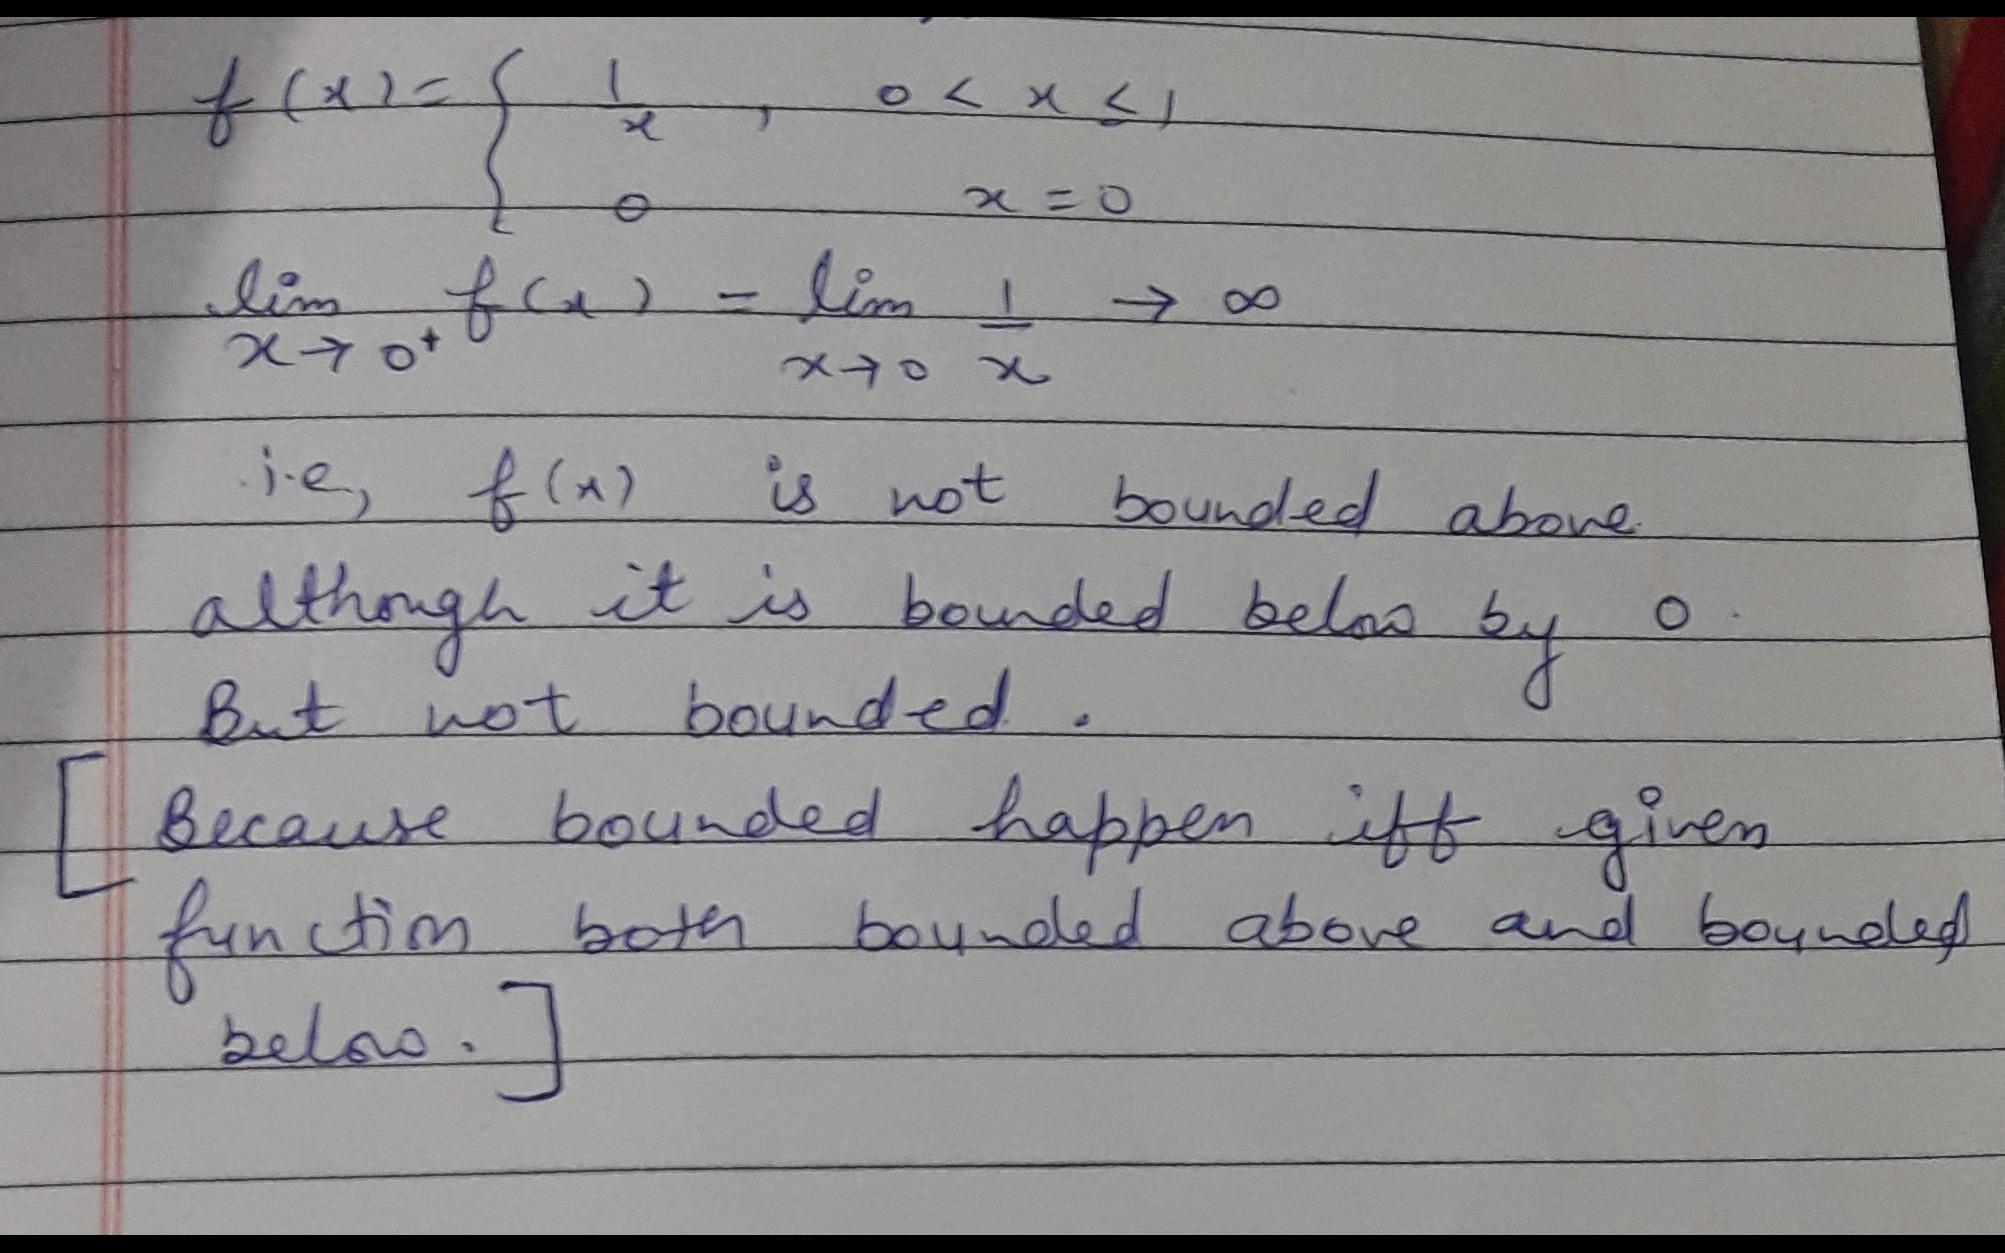 f(x) = { 1/x , 0 < x ≤ 1
0 x = 0
lim x→0+ f(x) = lim x→0 1/x → ∞
i.e, f(x) is not bounded above
although it is bounded below by 0.
But not bounded.
[Because bounded happen iff given
function both bounded above and bounded
below.]